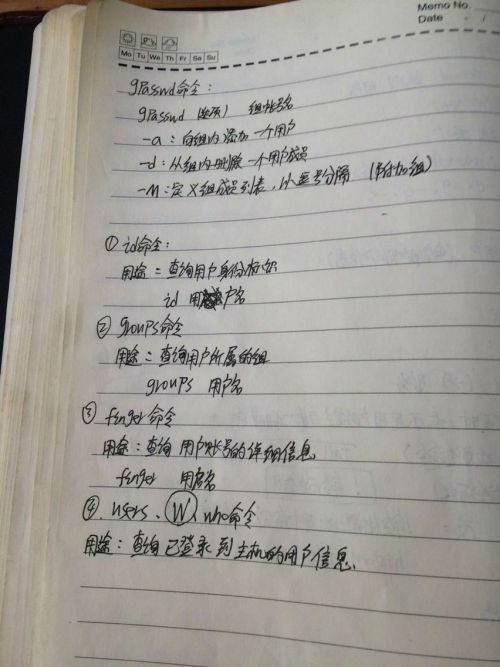 Memo No.
Date / /
Mo Tu We Th Fr Sa Su
gpasswd命令：
gpasswd （选项） 组帐号名
-a：向组内添加一个用户
-d：从组内删除一个用户成员
-M：定义组成员列表，以逗号分隔 （附加组）
① id命令：
用途：查询用户身份标识
id 用户名
② groups命令
用途：查询用户所属的组
groups 用户名
③ finger命令
用途：查询用户账号的详细信息
finger 用户名
④ users、W、who命令
用途：查询已登录到主机的用户信息